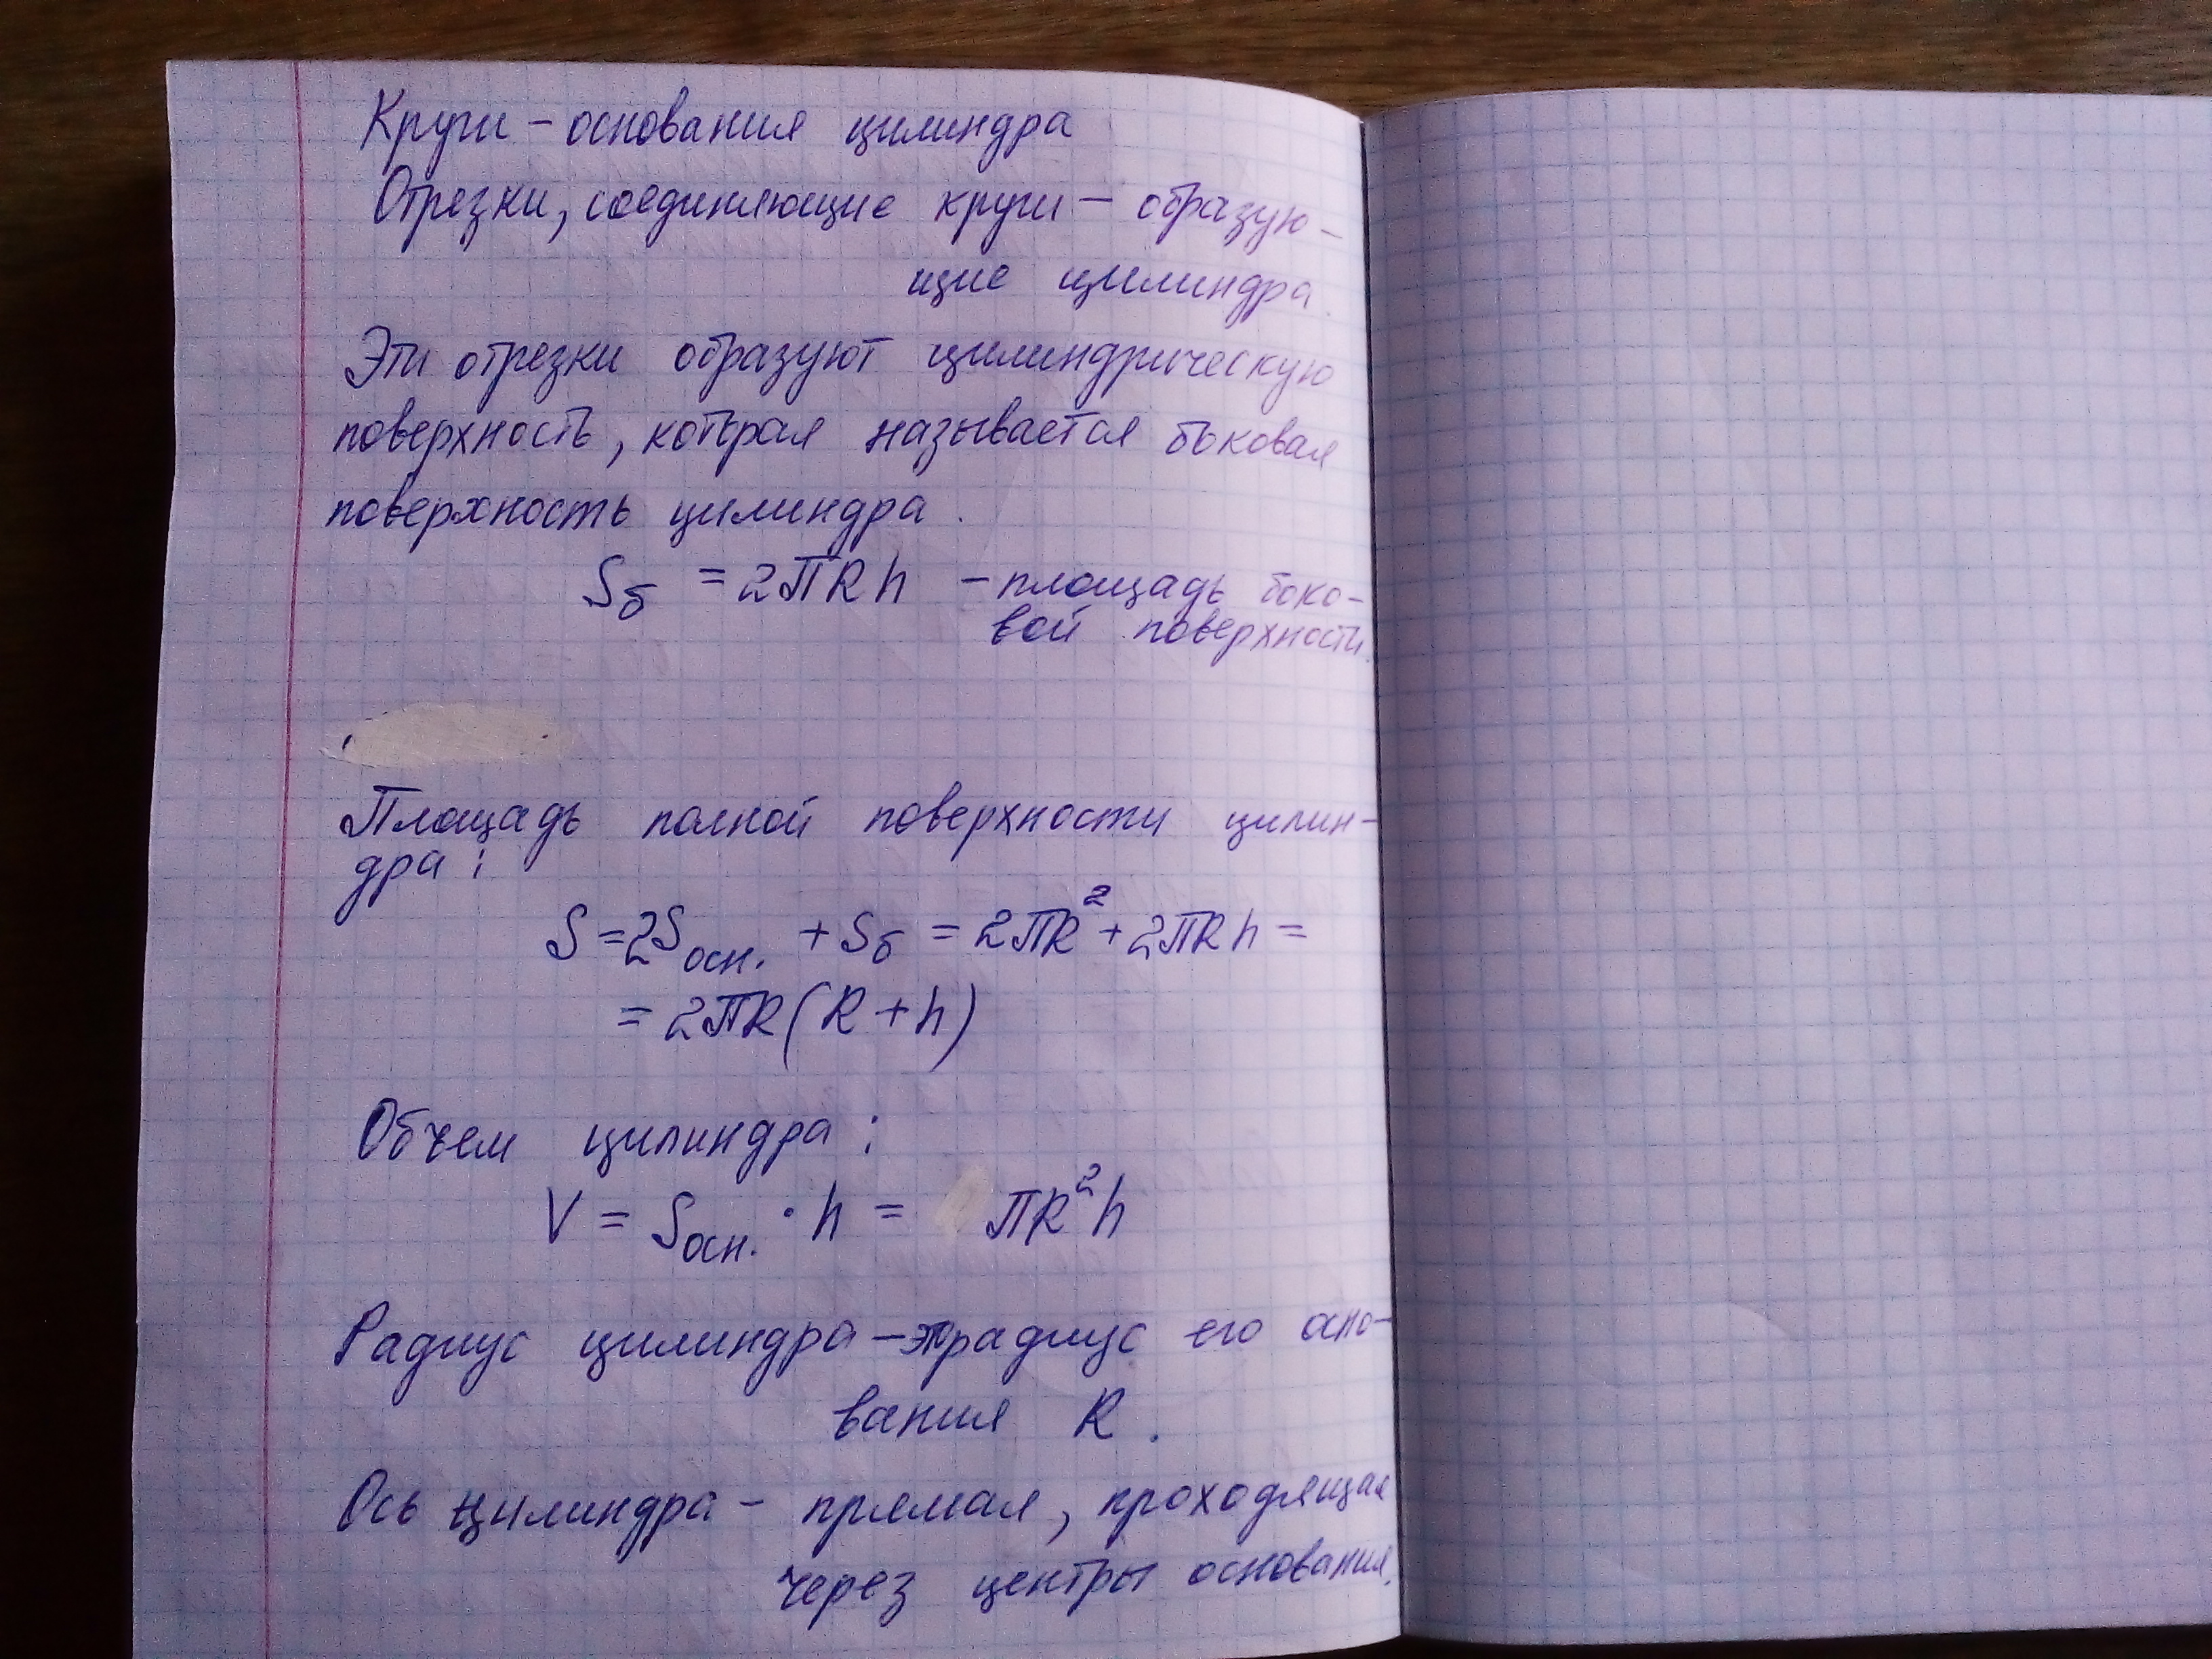 Круги – основания цилиндра
Отрезки, соединяющие круги – образую-
щие цилиндра.
Эти отрезки образуют цилиндрическую
поверхность, которая называется боковая
поверхность цилиндра.
Sб = 2πRh – площадь боко-
вой поверхности.
Площадь полной поверхности цилин-
дра:
S = 2Sосн. + Sб = 2πR² + 2πRh =
= 2πR(R + h)
Объем цилиндра:
V = Sосн. · h = πR²h
Радиус цилиндра – это радиус его осно-
вания R.
Ось цилиндра – прямая, проходящая
через центры основания.